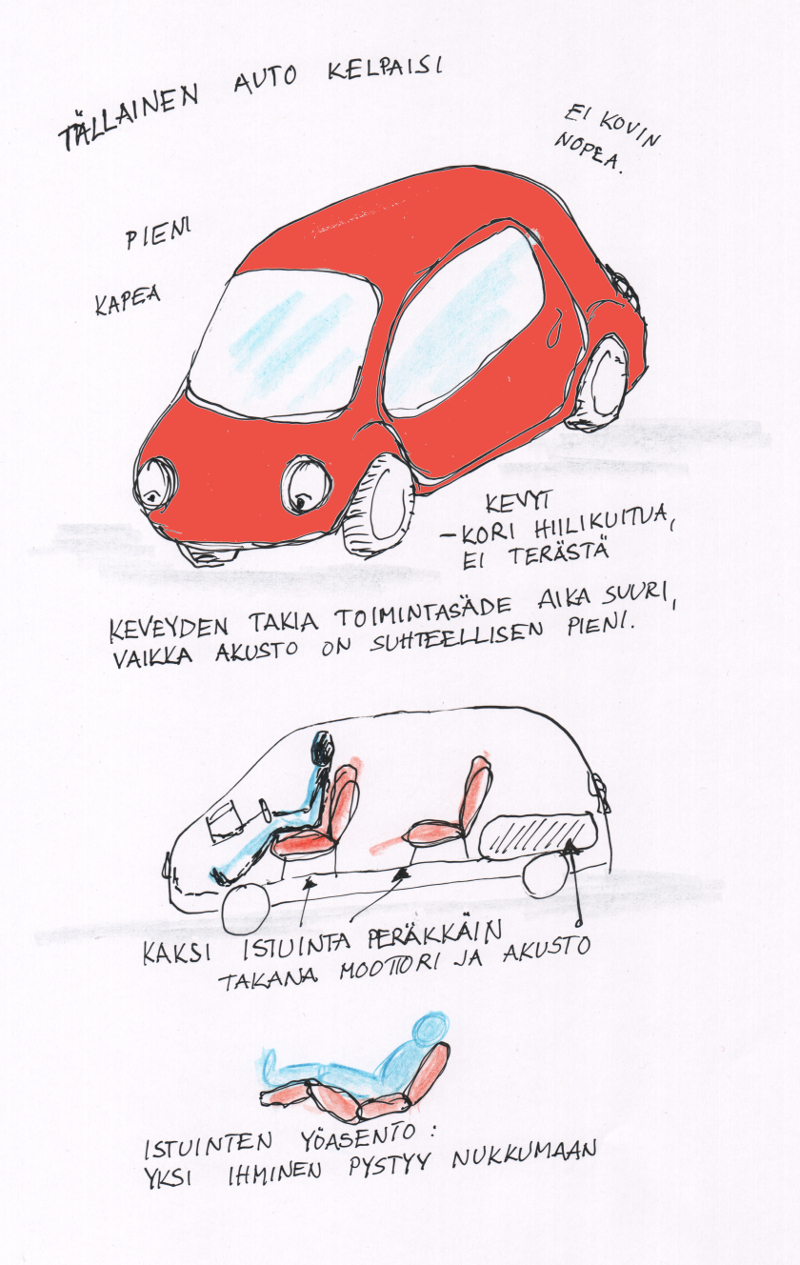 TÄLLAINEN AUTO KELPAISI
EI KOVIN
NOPEA.
PIENI
KAPEA
KEVYT
-KORI HIILIKUITUA,
EI TERÄSTÄ
KEVEYDEN TAKIA TOIMINTASÄDE AIKA SUURI,
VAIKKA AKUSTO ON SUHTEELLISEN PIENI.
KAKSI ISTUINTA PERÄKKÄIN
TAKANA MOOTTORI JA AKUSTO
ISTUINTEN YÖASENTO:
YKSI IHMINEN PYSTYY NUKKUMAAN